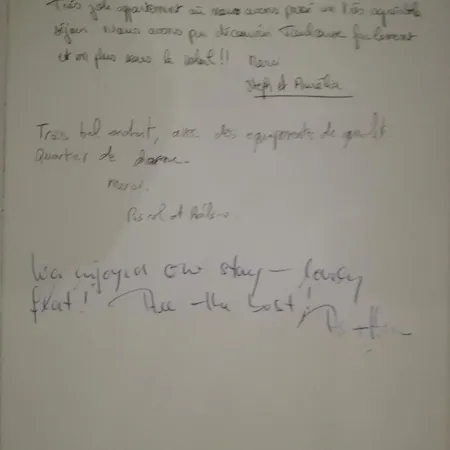 Très jolie appartement où nous avons passé un très agréable
séjour. Nous avons pu découvrir Toulouse facilement
et en plus sous le soleil!! Merci
Steph et Aurélia
Très bel endroit, avec des équipements de qualité.
Quartier de
Merci.
et
We enjoyed our stay – lovely
flat! the best!